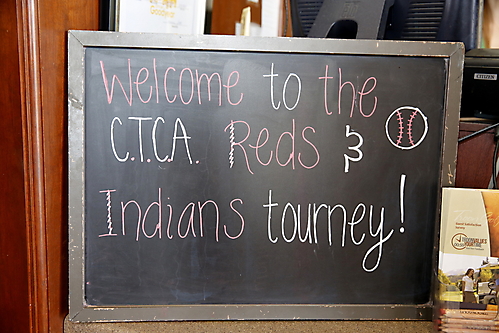 Welcome to the
C.T.C.A. Reds &
Indians tourney!
CITIZEN